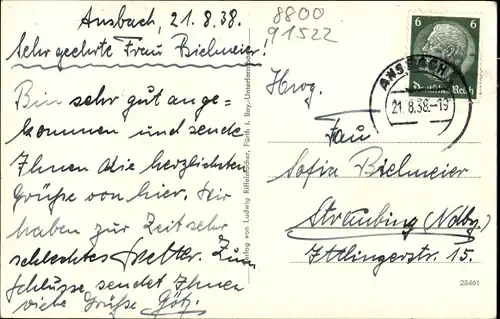 Ansbach, 21.8.38.
8800
91522
Sehr geehrte Frau Bielmeier!
Bin sehr gut ange-
kommen und sende
Ihnen die herzlichsten
Grüße von hier. Wir
haben zur Zeit sehr
schlechtes Wetter. Zum
Schlusse sendet Ihnen
viele Grüße Götz.
Verlag von Ludwig Riffelmacher, Fürth i. Bay.-Unterfarrnbach
6 6
Deutsches Reich
ANSBACH
21.8.38.-19
Frau
Sofia Bielmeier
Straubing (Ndby.)
Ittlingerstr. 15.
28461